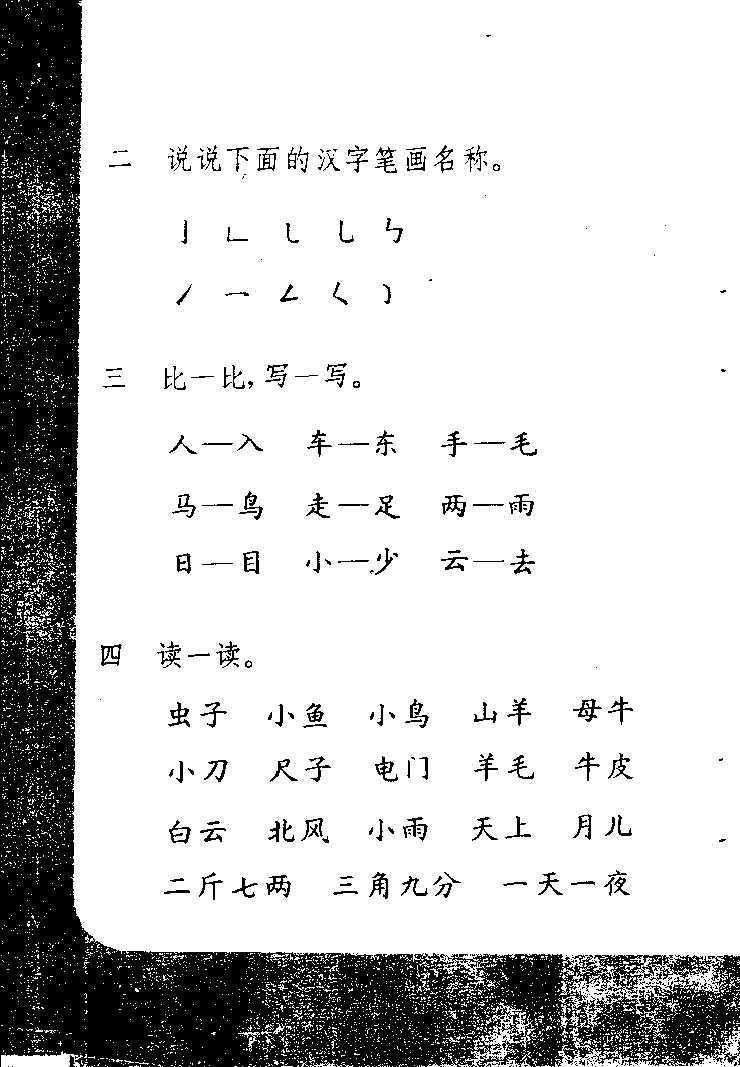 二 说说下面的汉字笔画名称。
亅 𠃊 ㇙ ㇄ ㄣ
㇒ ㇐ ㄥ ㄑ ㇁
三 比一比,写一写。
人—入 车—东 手—毛
马—鸟 走—足 两—雨
日—目 小—少 云—去
四 读一读。
虫子 小鱼 小鸟 山羊 母牛
小刀 尺子 电门 羊毛 牛皮
白云 北风 小雨 天上 月儿
二斤七两 三角九分 一天一夜